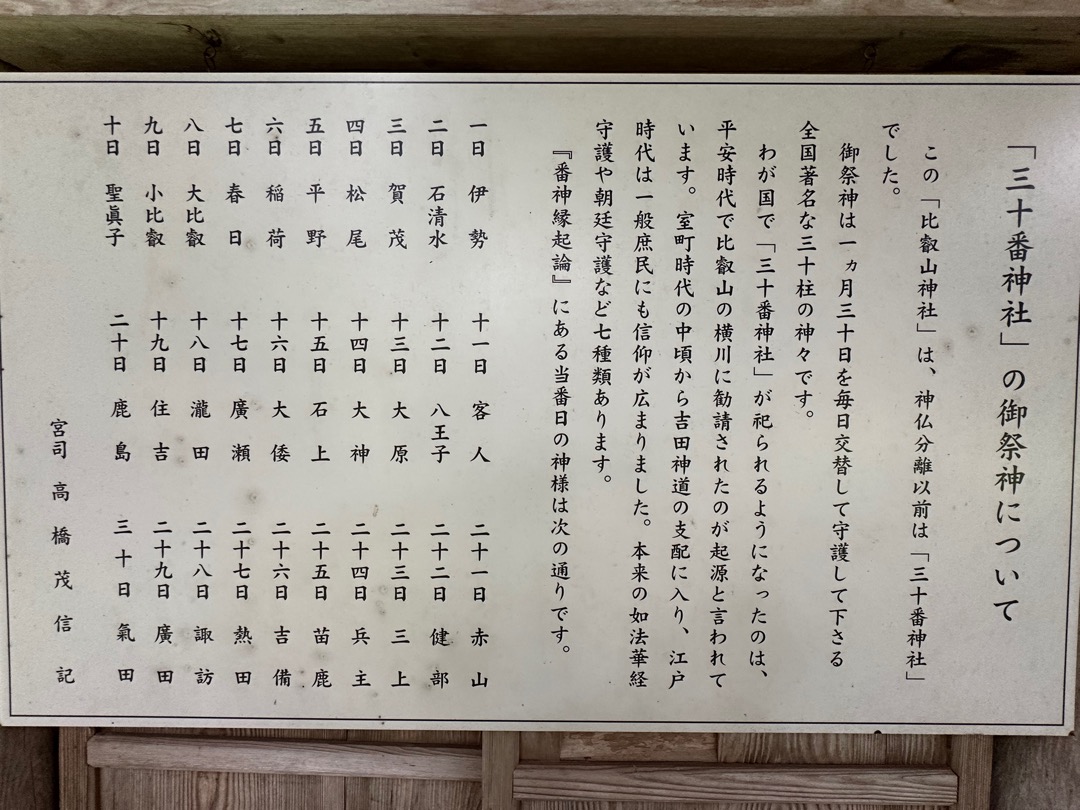 「三十番神社」の御祭神について
この「比叡山神社」は、神仏分離以前は「三十番神社」
でした。
御祭神は一ヵ月三十日を毎日交替して守護して下さる
全国著名な三十柱の神々です。
わが国で「三十番神社」が祀られるようになったのは、
平安時代で比叡山の横川に勧請されたのが起源と言われて
います。室町時代の中頃から吉田神道の支配に入り、江戸
時代は一般庶民にも信仰が広まりました。本来の如法華経
守護や朝廷守護など七種類あります。
『番神縁起論』にある当番日の神様は次の通りです。
一日 伊勢
二日 石清水
三日 賀茂
四日 松尾
五日 平野
六日 稲荷
七日 春日
八日 大比叡
九日 小比叡
十日 聖眞子
十一日 客人
十二日 八王子
十三日 大原
十四日 大神
十五日 石上
十六日 大倭
十七日 廣瀬
十八日 瀧田
十九日 住吉
二十日 鹿島
二十一日 赤山
二十二日 健部
二十三日 三上
二十四日 兵主
二十五日 苗鹿
二十六日 吉備
二十七日 熱田
二十八日 諏訪
二十九日 廣田
三十日 氣田
宮司 高橋茂信 記